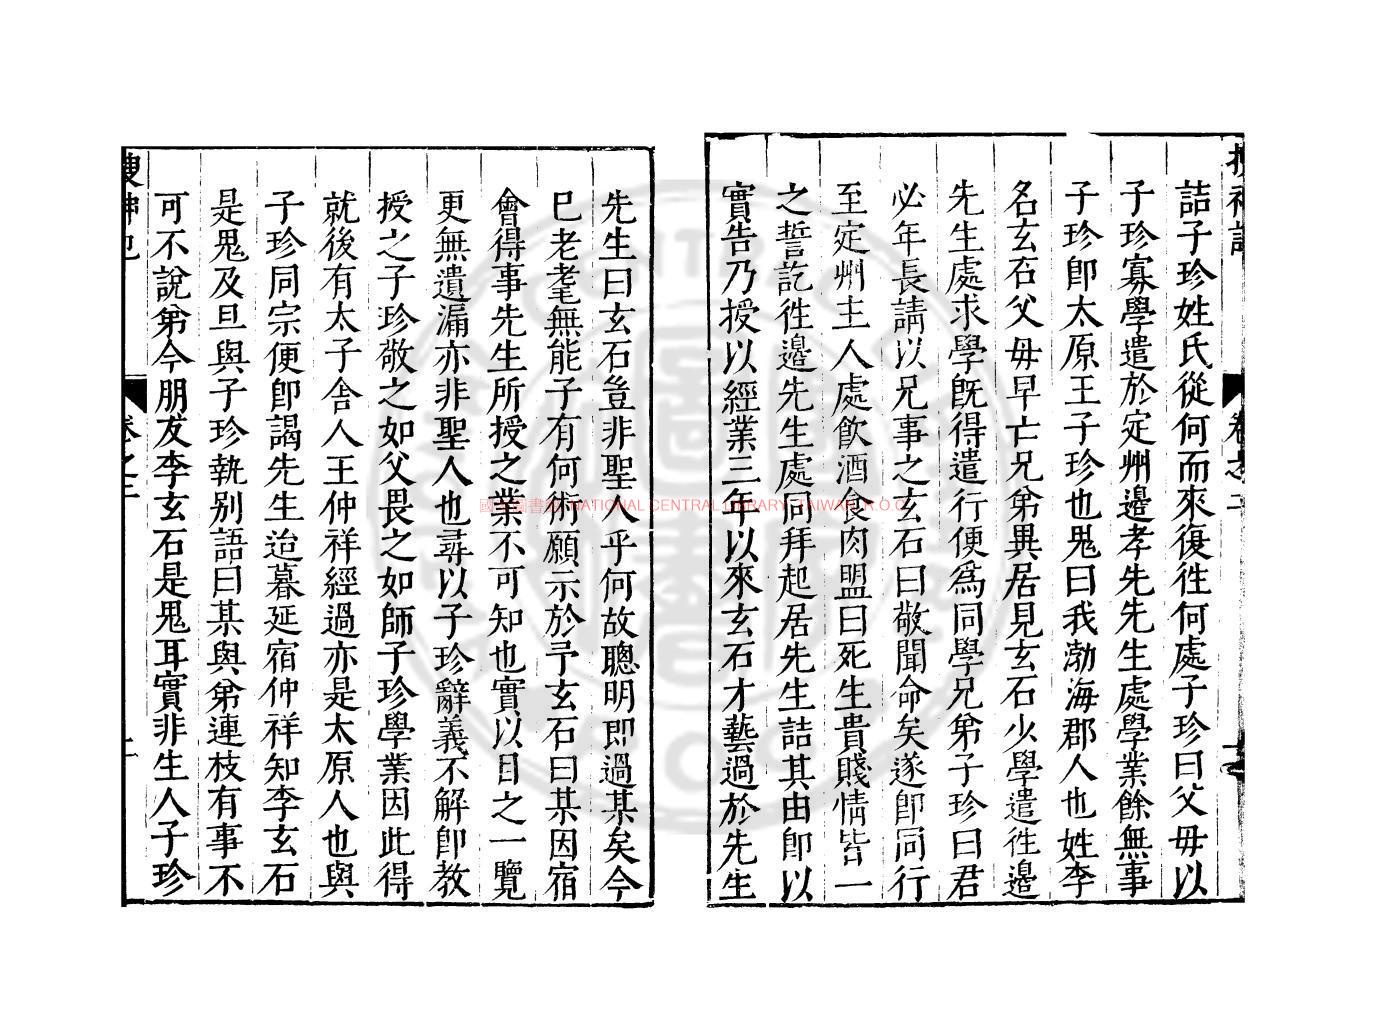 詰子珍姓氏從何而來復徃何處子珍曰父毋以
子珍寡學遣於定州邉孝先先生處學業餘無事
子珍卽太原王子珍也鬼曰我渤海郡人也姓李
名玄石父毋早亡兄弟異居見玄石少學遣徃邉
先生處求學旣得遣行便爲同學兄弟子珍曰君
必年長請以兄事之玄石曰敬聞命矣遂卽同行
至定州主人處飲酒食肉盟曰死生貴賤情皆一
之誓訖徃邉先生處同拜起居先生詰其由卽以
實告乃授以經業三年以來玄石才藝過於先生
先生曰玄石豈非聖人乎何故聰明即過某矣今
巳老耄無能子有何術願示於予玄石曰某因宿
會得事先生所授之業不可知也實以目之一覽
更無遺漏亦非聖人也尋以子珍辭義不解卽教
授之子珍敬之如父畏之如師子珍學業因此得
就後有太子舍人王仲祥經過亦是太原人也與
子珍同宗便卽謁先生迨暮延宿仲祥知李玄石
是鬼及旦與子珍執别語曰某與弟連枝有事不
可不說弟今朋友李玄石是鬼耳實非生人子珍
卷之三
國家圖書館 NATIONAL CENTRAL LIBRARY, TAIWAN, R.O.C.